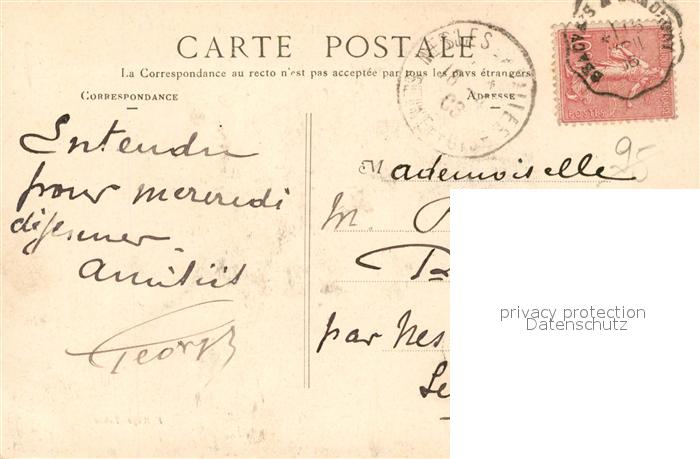 CARTE POSTALE
La Correspondance au recto n'est pas acceptée par tous les pays étrangers
CORRESPONDANCE
ADRESSE
Entendu
pour mercredi
déjeuner
Amitiés
Georges
Mademoiselle
M.
par Nes
95
POSTES
privacy protection
Datenschutz